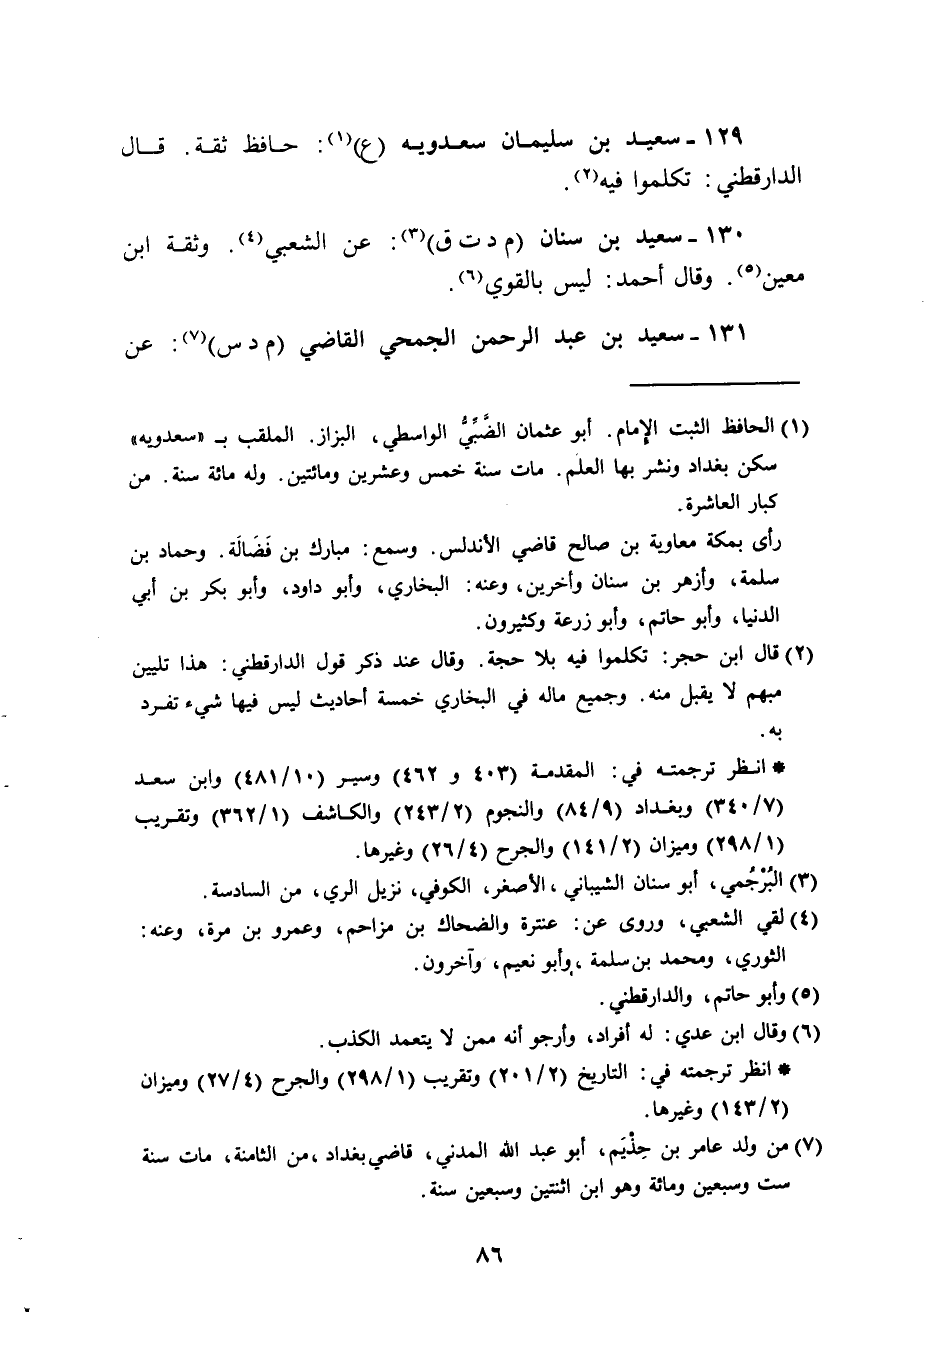 ١٢٩ ـ سعيد بن سليمان سعدويه (ع)(١): حافظ ثقة. قال
الدارقطني: تكلموا فيه(٢).
١٣٠ ـ سعيد بن سنان (م د ت ق)(٣): عن الشعبي(٤). وثقة ابن
معين(٥). وقال أحمد: ليس بالقوي(٦).
١٣١ ـ سعيد بن عبد الرحمن الجمحي القاضي (م د س)(٧): عن
(١) الحافظ الثبت الإمام. أبو عثمان الضَّبِّيُّ الواسطي، البزاز. الملقب بـ «سعدويه»
سكن بغداد ونشر بها العلم. مات سنة خمس وعشرين ومائتين. وله مائة سنة. من
كبار العاشرة.
رأى بمكة معاوية بن صالح قاضي الأندلس. وسمع: مبارك بن فَضَالَة. وحماد بن
سلمة، وأزهر بن سنان وأخرين، وعنه: البخاري، وأبو داود، وأبو بكر بن أبي
الدنيا، وأبو حاتم، وأبو زرعة وكثيرون.
(٢) قال ابن حجر: تكلموا فيه بلا حجة. وقال عند ذكر قول الدارقطني: هذا تليين
مبهم لا يقبل منه. وجميع ماله في البخاري خمسة أحاديث ليس فيها شيء تفرد
به.
* انظر ترجمته في: المقدمة (٤٠٣ و ٤٦٢) وسير (٤٨١/١٠) وابن سعد
(٣٤٠/٧) وبغداد (٨٤/٩) والنجوم (٢٤٣/٢) والكاشف (٣٦٢/١) وتقريب
(٢٩٨/١) وميزان (١٤١/٢) والجرح (٢٦/٤) وغيرها.
(٣) البُرْجُمي، أبو سنان الشيباني، الأصغر، الكوفي، نزيل الري، من السادسة.
(٤) لقي الشعبي، وروى عن: عنترة والضحاك بن مزاحم، وعمرو بن مرة، وعنه:
الثوري، ومحمد بن سلمة، وأبو نعيم، وآخرون.
(٥) وأبو حاتم، والدارقطني.
(٦) وقال ابن عدي: له أفراد، وأرجو أنه ممن لا يتعمد الكذب.
* انظر ترجمته في: التاريخ (٢٠١/٢) وتقريب (٢٩٨/١) والجرح (٢٧/٤) وميزان
(١٤٣/٢) وغيرها.
(٧) من ولد عامر بن حِذْيَم، أبو عبد الله المدني، قاضي بغداد، من الثامنة، مات سنة
ست وسبعين ومائة وهو ابن اثنتين وسبعين سنة.
٨٦